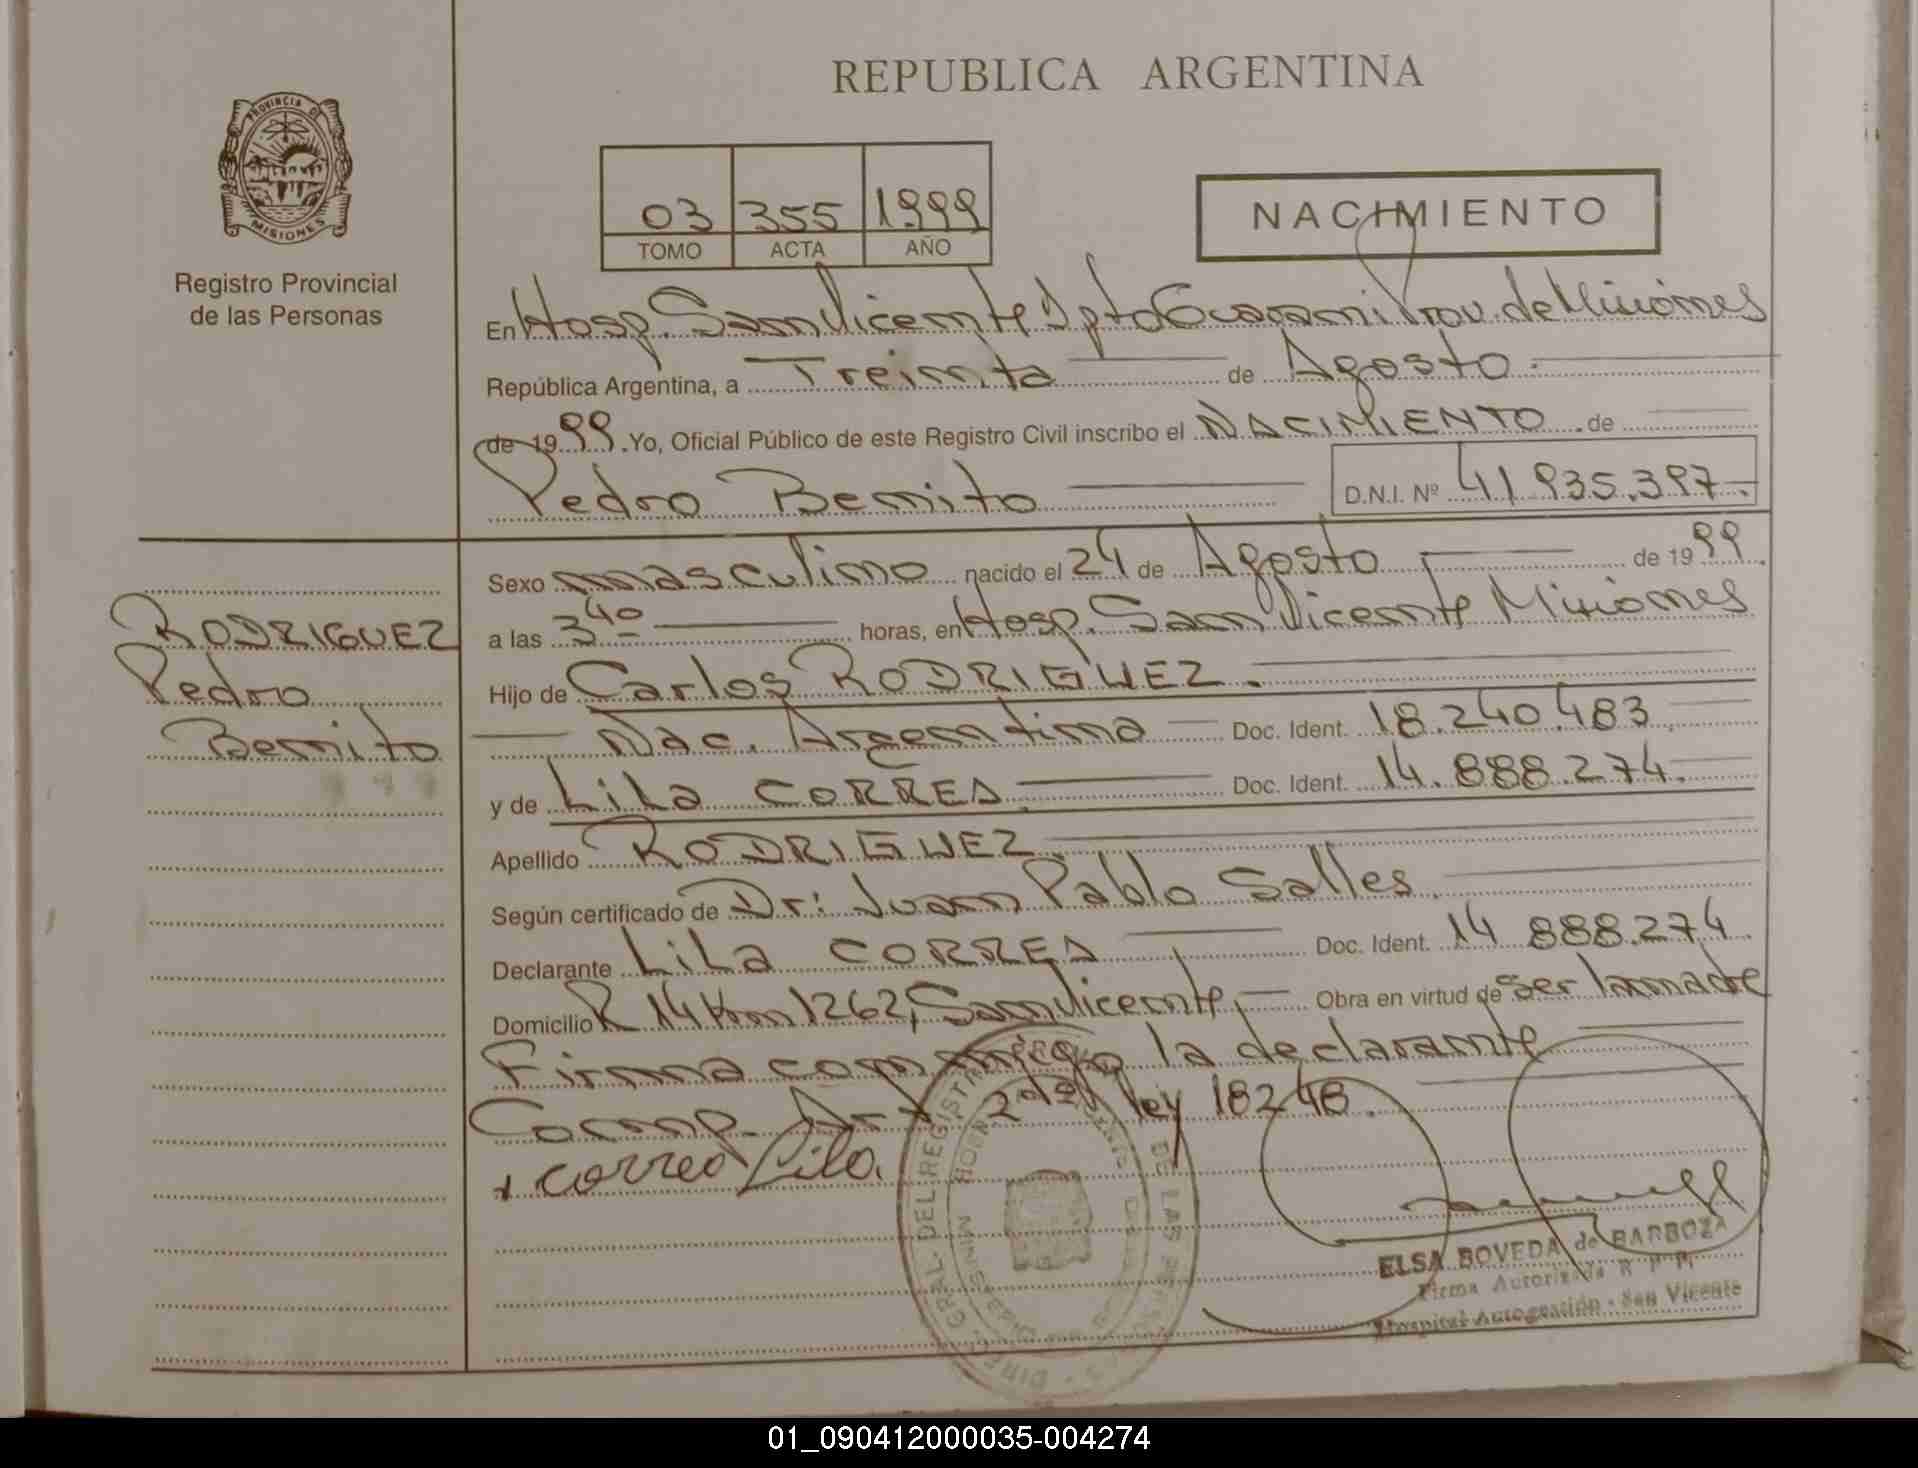 REPUBLICA ARGENTINA
PROVINCIA DE
MISIONES
Registro Provincial
de las Personas
03 355 1999
TOMO ACTA AÑO
NACIMIENTO
En Hosp. San Vicente Dpto Guarani Prov. de Misiones
República Argentina, a Treinta de Agosto
de 1999. Yo, Oficial Público de este Registro Civil inscribo el NACIMIENTO de
Pedro Benito D.N.I. Nº 41.935.397.-
RODRIGUEZ
Pedro
Benito
Sexo masculino nacido el 24 de Agosto de 1999.
a las 3 40 horas, en Hosp. San Vicente Misiones
Hijo de Carlos RODRIGUEZ.
Nac. Argentina Doc. Ident. 18.240.483
y de Lila CORREA. Doc. Ident. 14.888.274.
Apellido RODRIGUEZ.
Según certificado de Dr: Juan Pablo Salles.
Declarante Lila CORREA Doc. Ident. 14 888.274.
Domicilio R 14 Km 1262, San Vicente, Obra en virtud de ser la madre
Firma conmigo la declarante
Comp. Art. 2do ley 18248.
+ correa Lila.
DE LAS PERSONAS
ELSA BOVEDA de BARBOZA
Firma Autorizada R P P
Hospital Autogestión - San Vicente
01_090412000035-004274